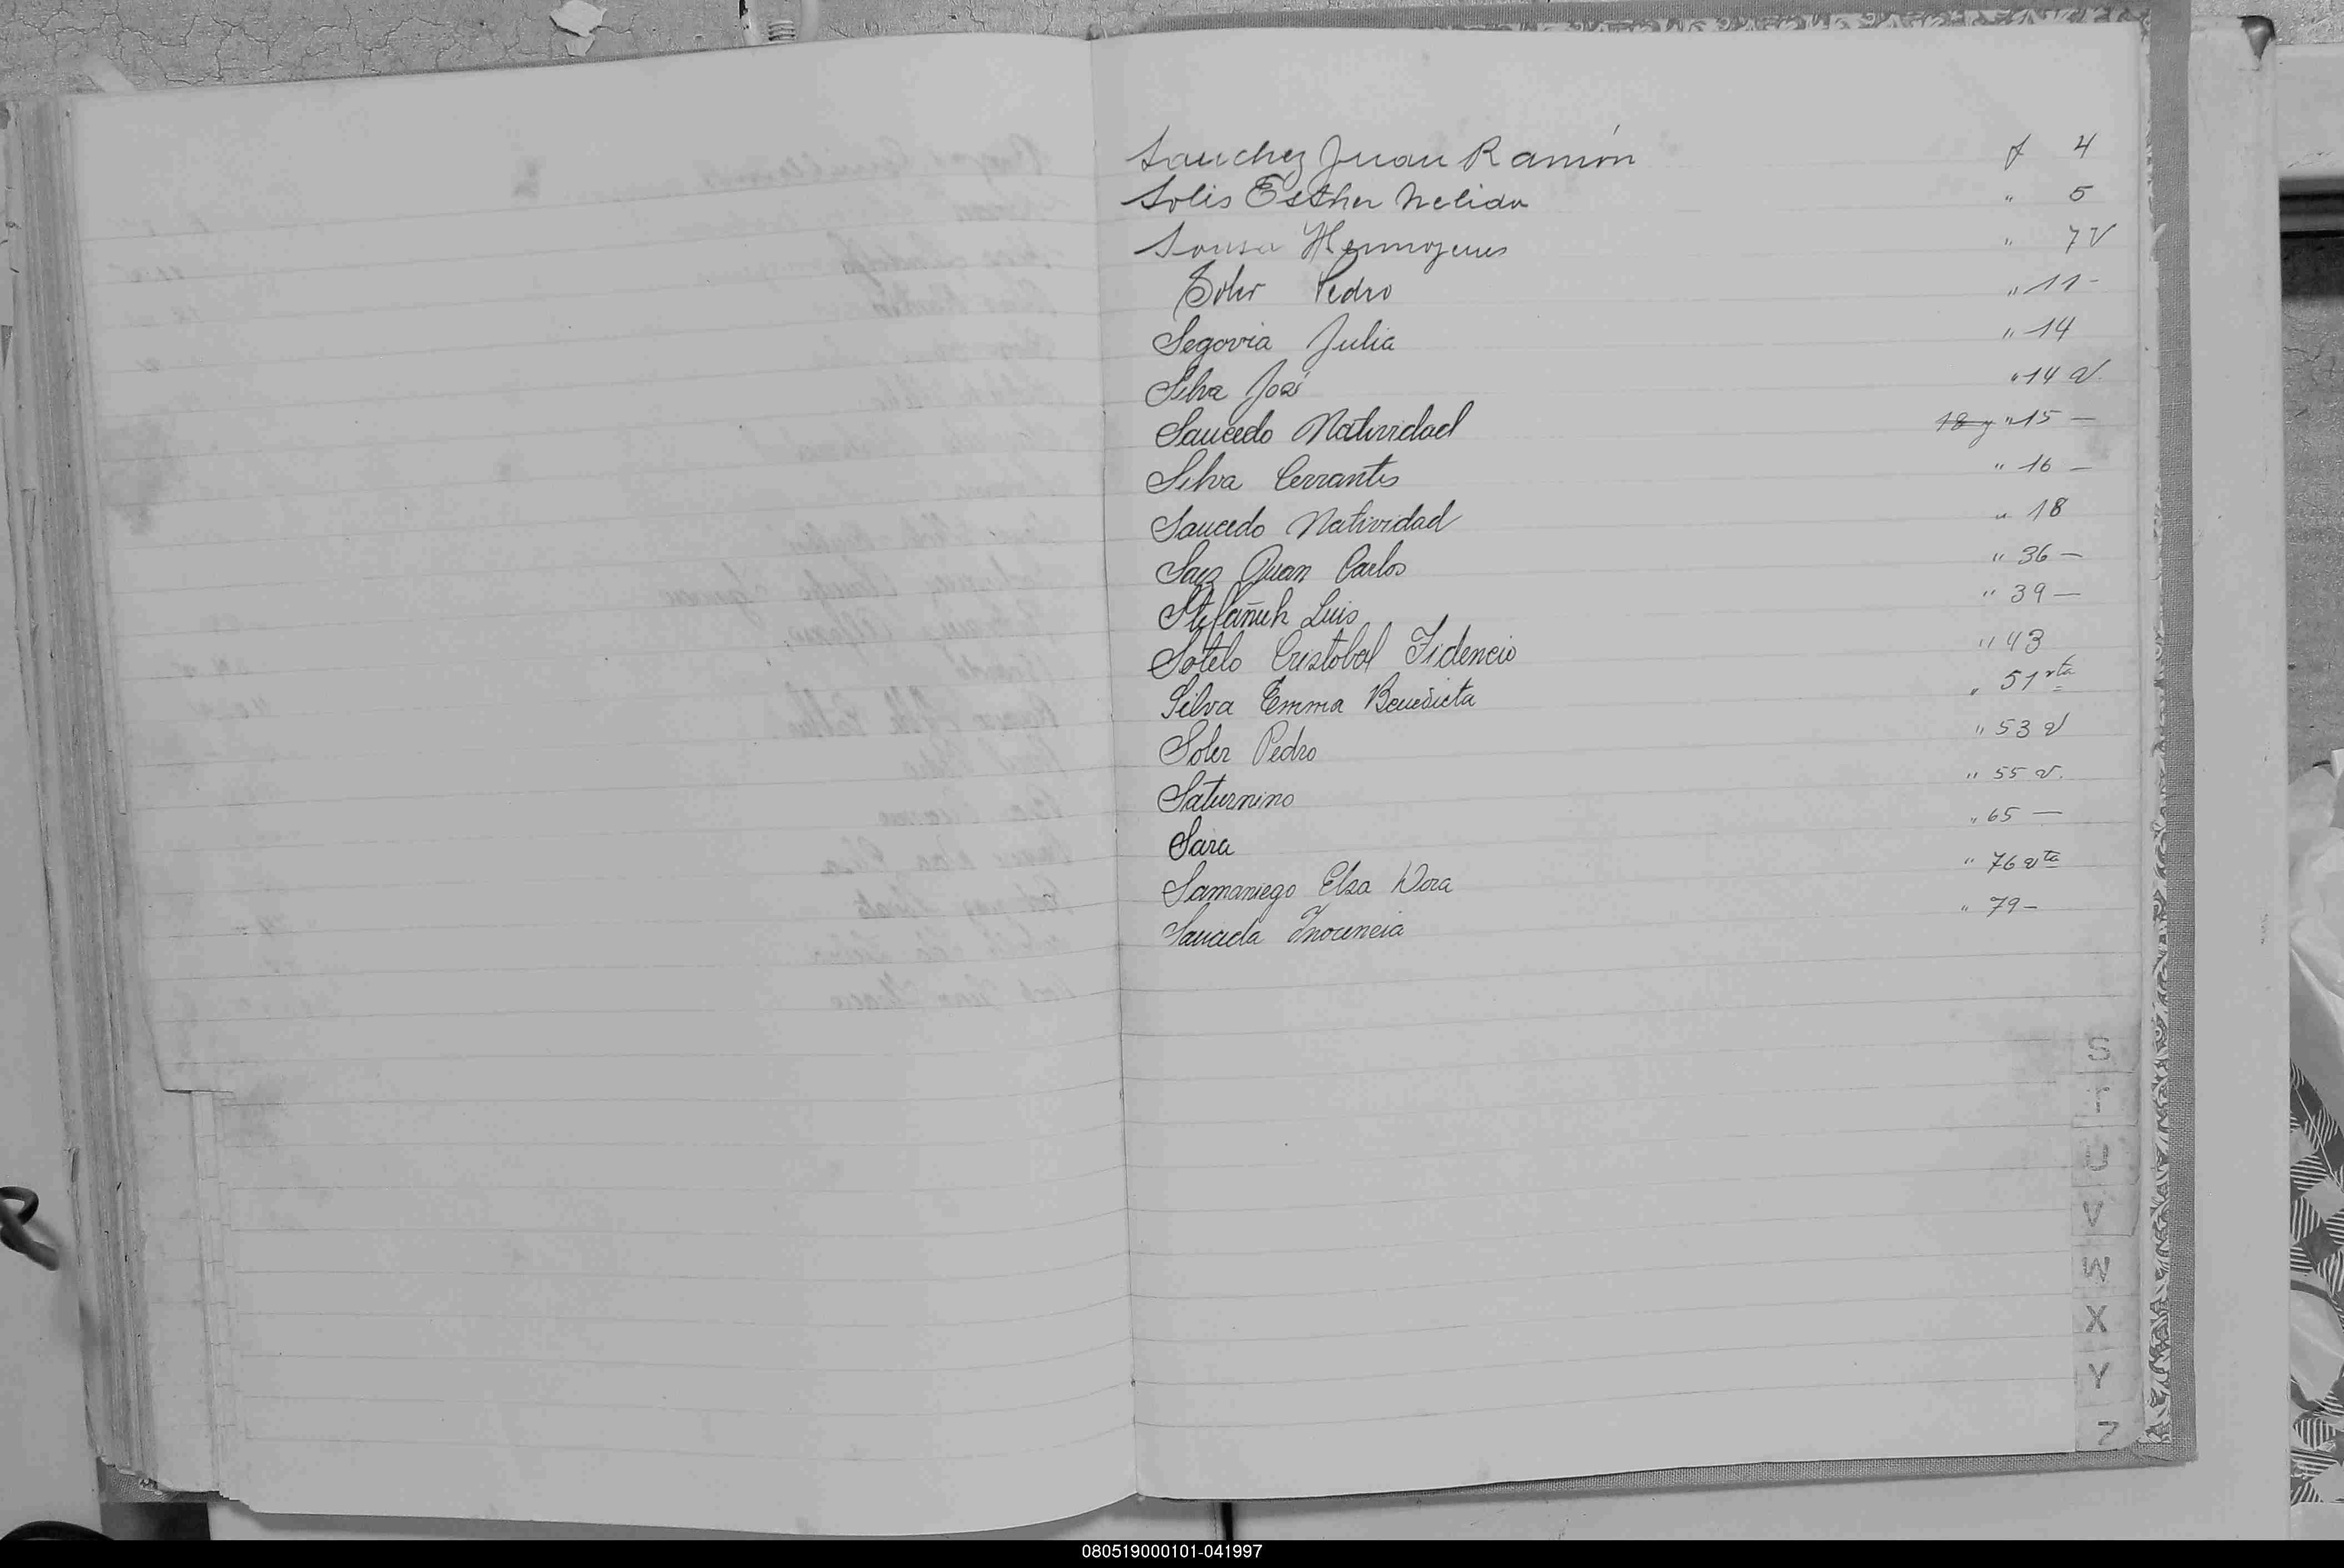 Sanchez Juan Ramón f 4
Solis Esther Nelida " 5
Sousa Hermogenes " 7 V
Soler Pedro " 11 -
Segovia Julia " 14
Silva José " 14 v.
Saucedo Natividad 18 y " 15 —
Silva Cerrantes " 16 —
Saucedo Natividad " 18
Saez Juan Carlos " 36 —
Stefañuk Luis " 39 —
Sotelo Cristobal Fidencio " 43
Silva Emma Benedicta " 51 vta
Soler Pedro " 53 v
Saturnino " 55 v.
Sara " 65 —
Samaniego Elsa Dora " 76 vta
Inocencia " 79 -
S
T
U
V
W
X
Y
Z
080519000101-041997